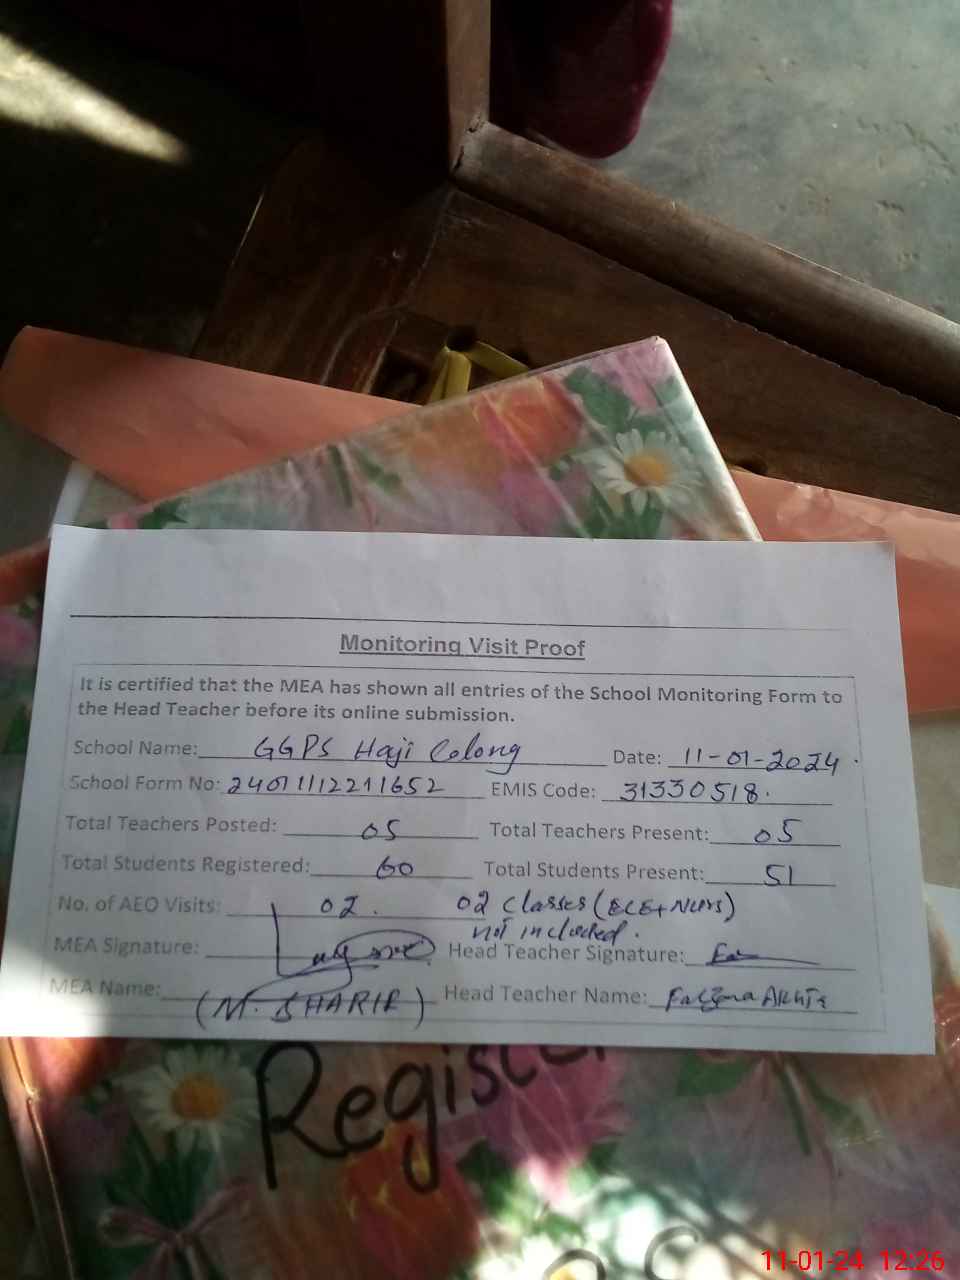 Monitoring Visit Proof
It is certified that the MEA has shown all entries of the School Monitoring Form to
the Head Teacher before its online submission.
School Name: GGPS Haji Colony Date: 11-01-2024
School Form No: 24011112211652 EMIS Code: 31330518.
Total Teachers Posted: 05 Total Teachers Present: 05
Total Students Registered: 60 Total Students Present: 51
No. of AEO Visits: 02. 02 classes (ECE+Nurs)
not included.
MEA Signature: Head Teacher Signature:
MEA Name: (M. SHARIF) Head Teacher Name:
Register
11-01-24 12:26